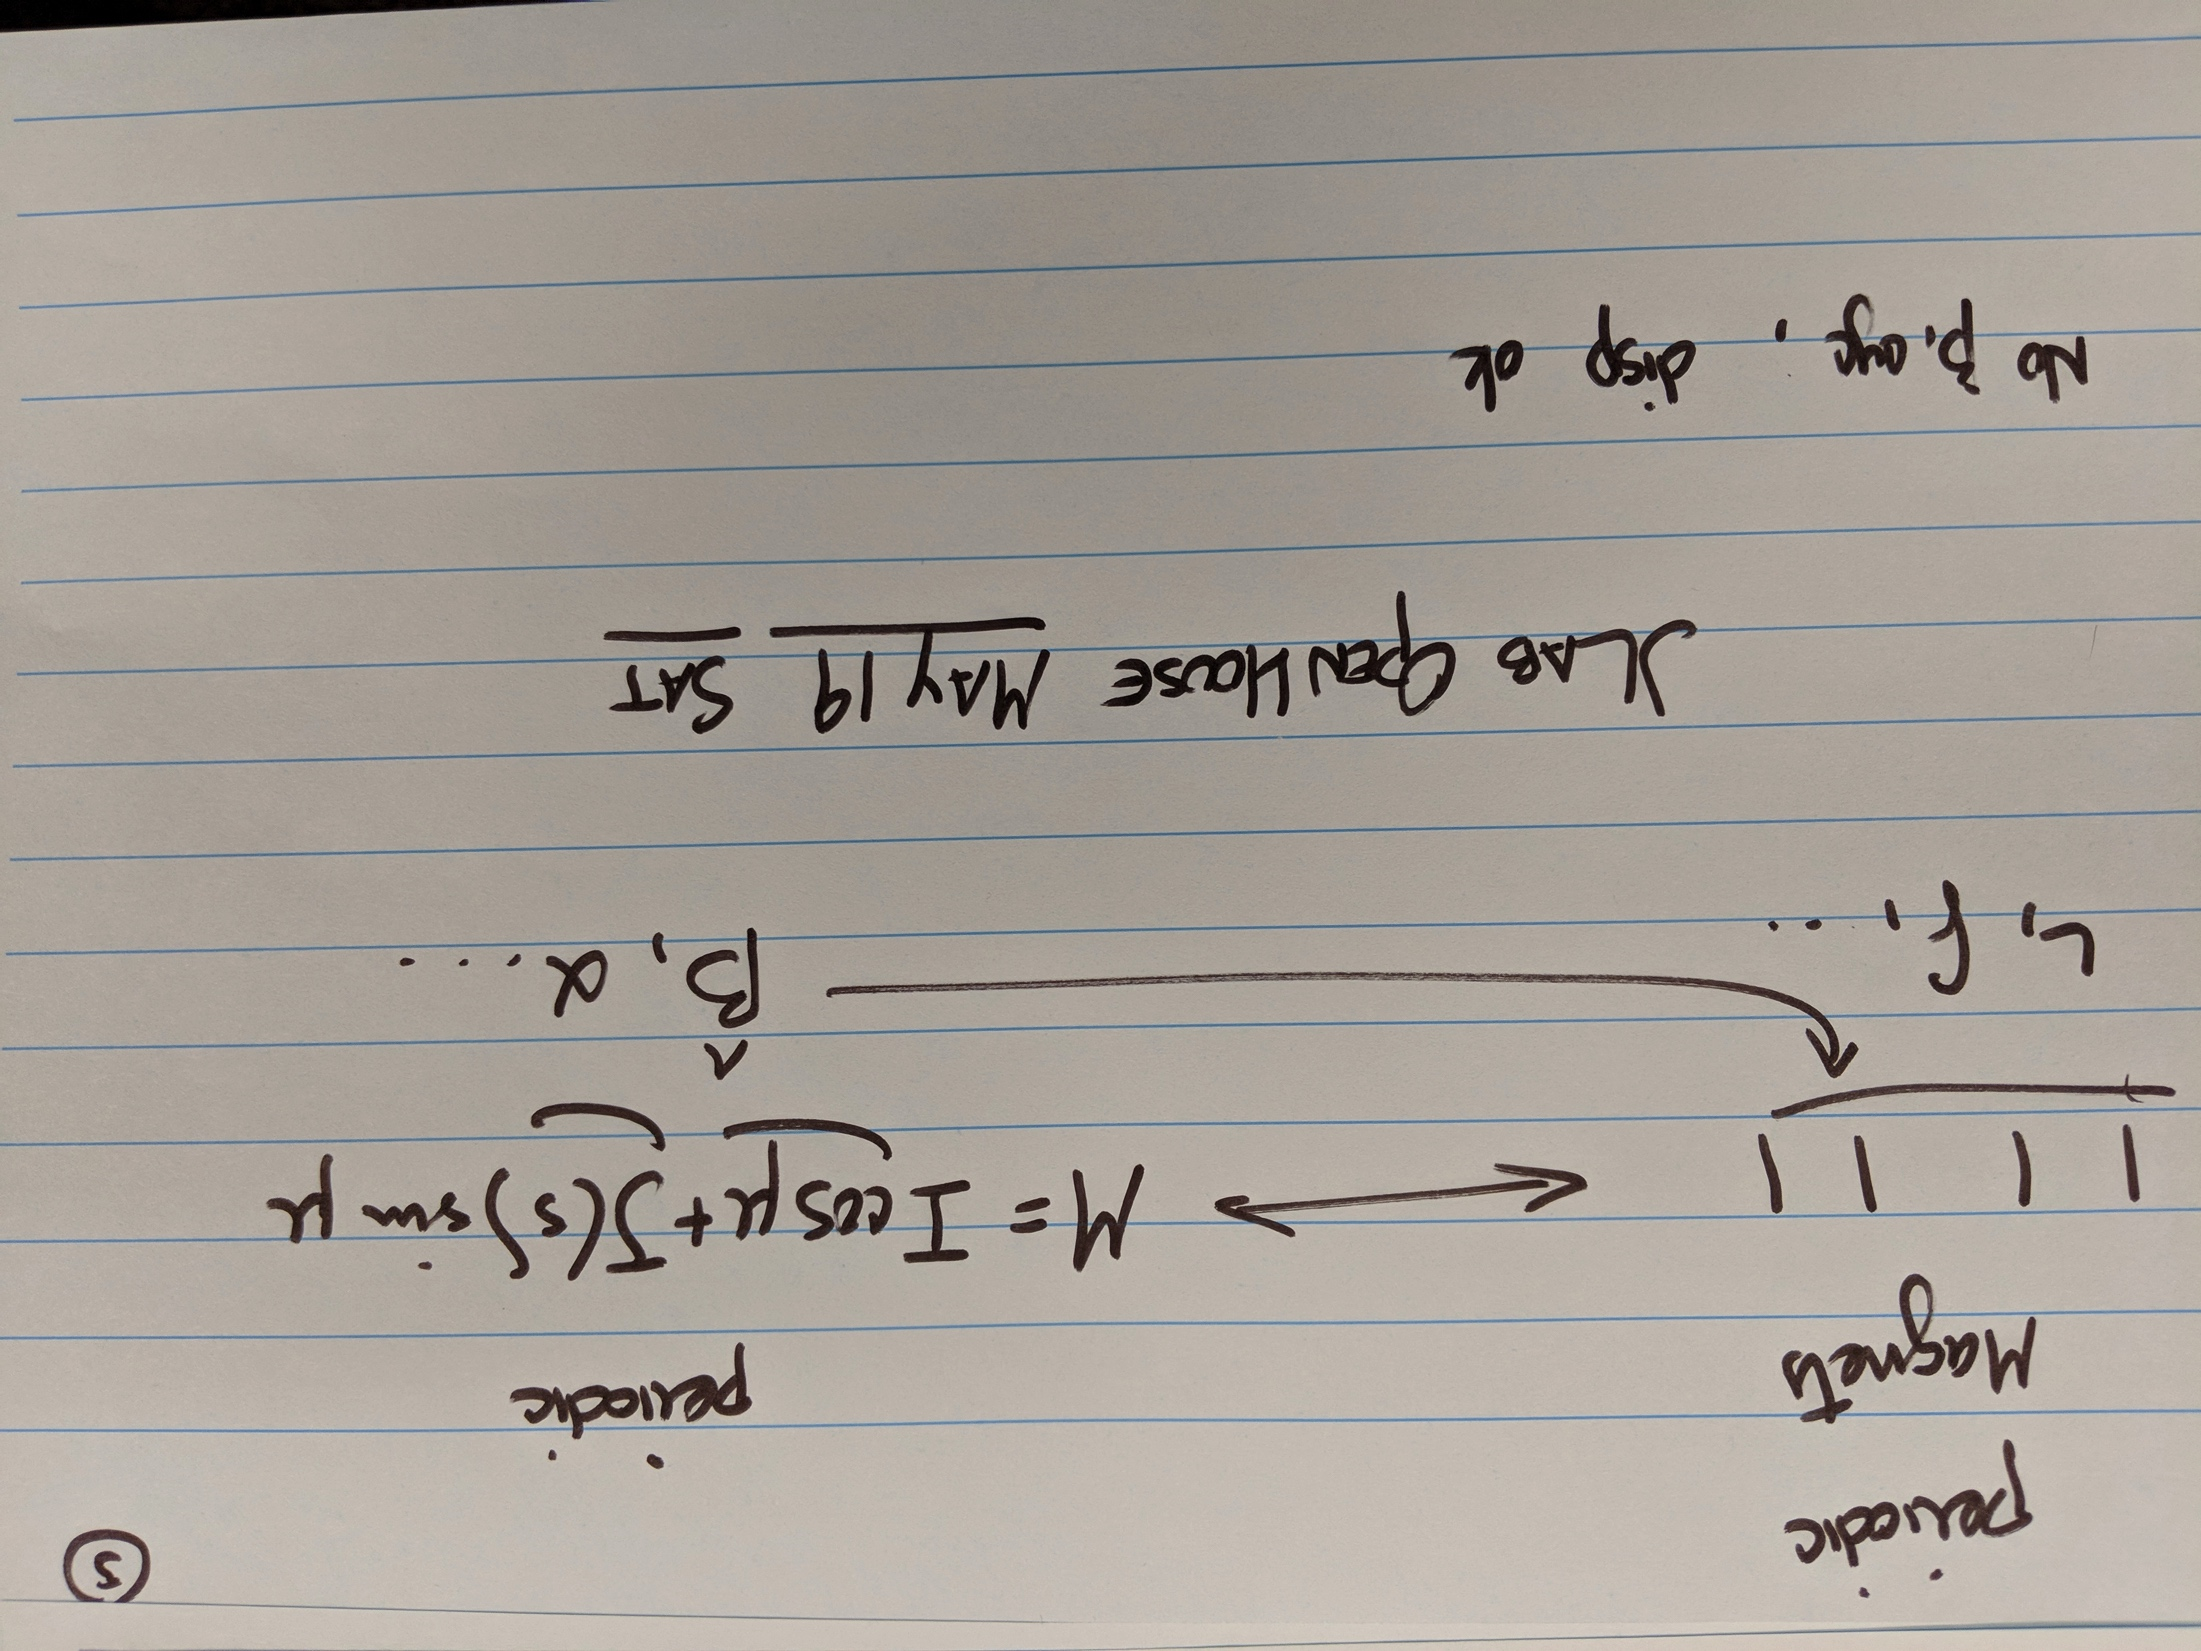 ⑤
periodic
Magnets
periodic
M = I cos μ + J(s) sin μ
L, f, ...
β, α ....
JLAB OPEN HOUSE MAY 19 SAT
No β, disp ok